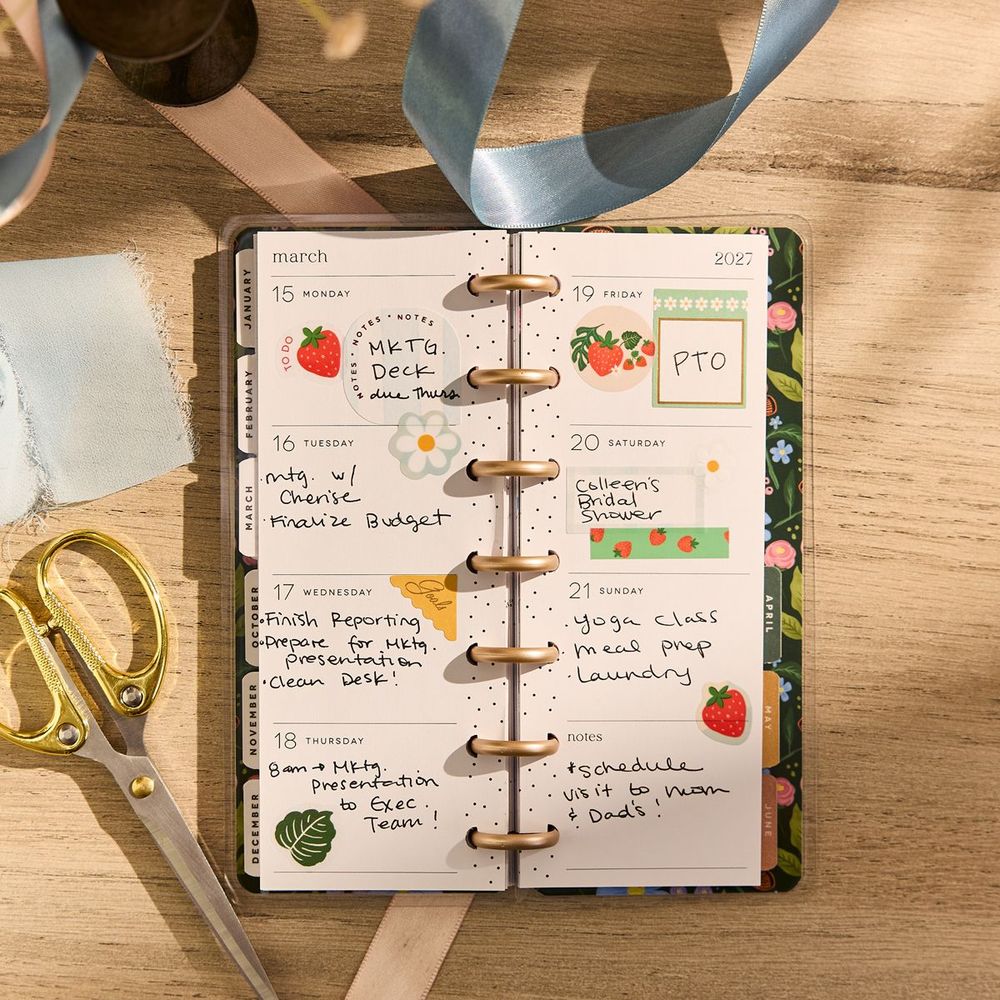 march
15 MONDAY
TO DO
NOTES • NOTES • NOTES
MKTG.
Deck
due Thurs
16 TUESDAY
·mtg. w/
Cherise
·Finalize Budget
17 WEDNESDAY
Goals
·Finish Reporting
·Prepare for Mktg.
presentation
·Clean Desk!
18 THURSDAY
8am → Mktg.
presentation
to Exec
Team!
2027
19 FRIDAY
PTO
20 SATURDAY
Colleen's
Bridal
Shower
21 SUNDAY
·yoga class
·meal prep
·Laundry
notes
*schedule
visit to mom
& Dad's!
JANUARY
FEBRUARY
MARCH
OCTOBER
NOVEMBER
DECEMBER
APRIL
MAY
JUNE